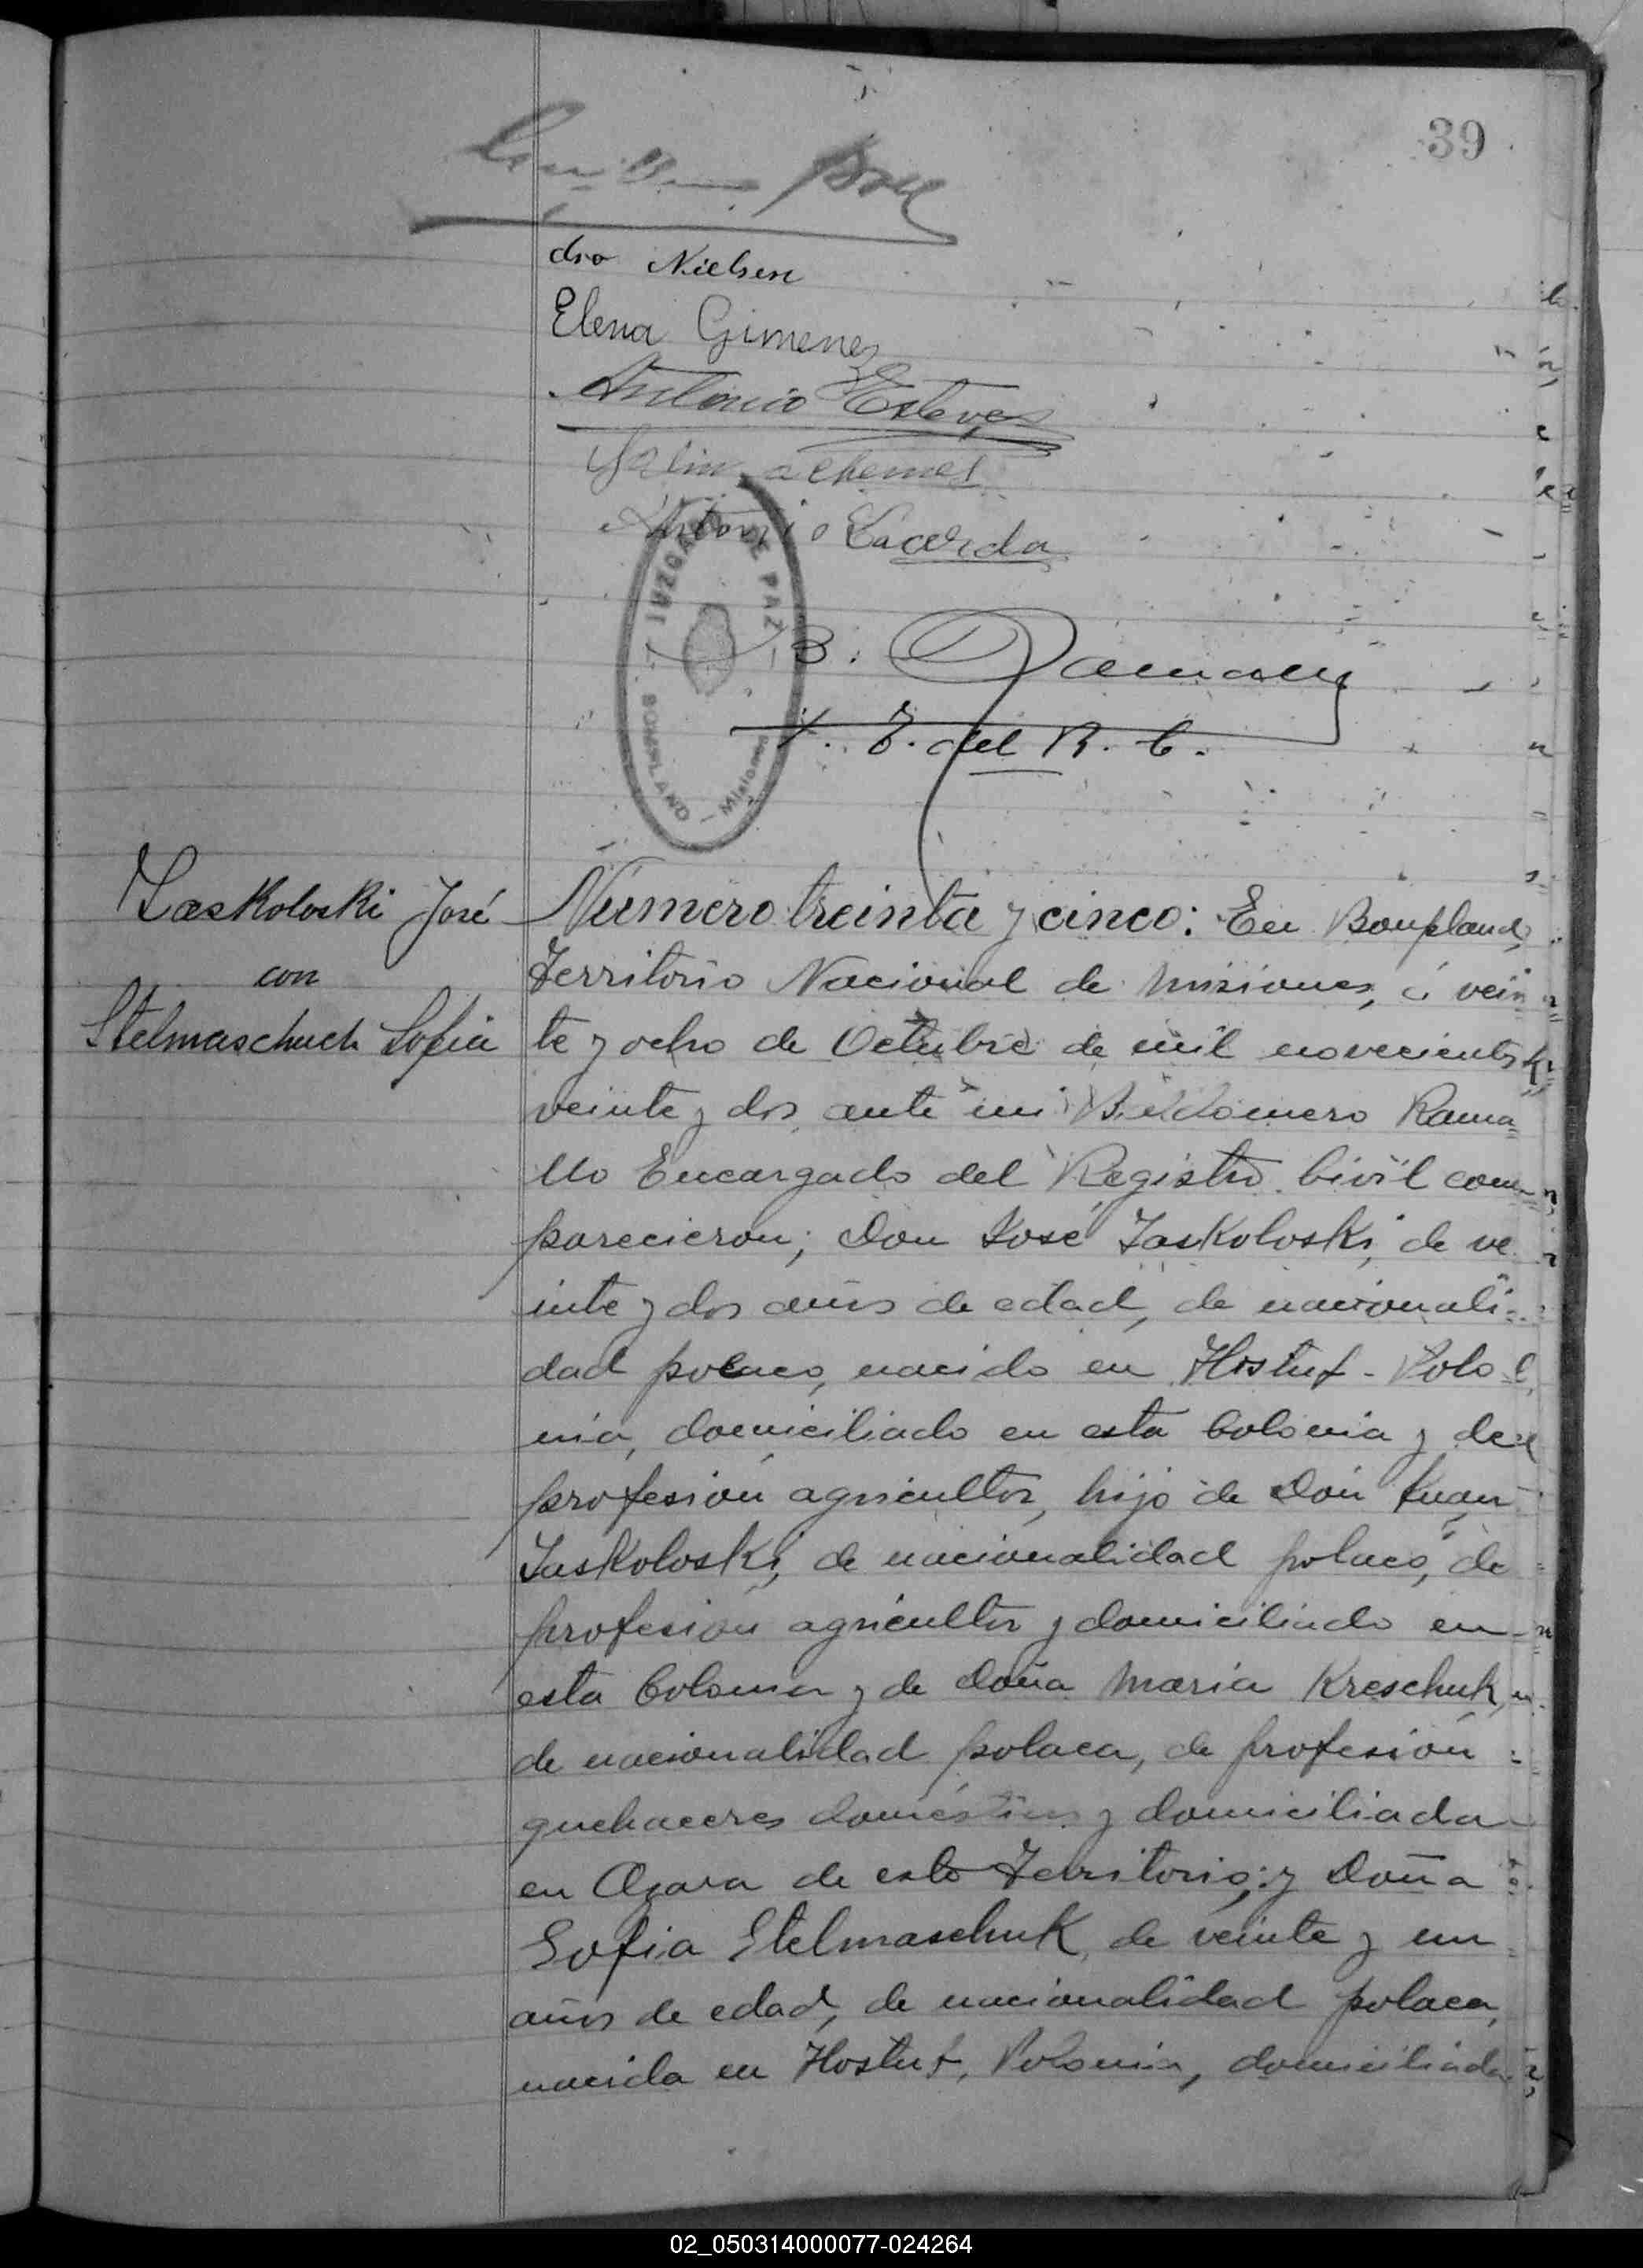 39
dro Nielsen
Elena Gimenez
Antonio Esteves
Antonio Lacerda
JUZGADO DE PAZ
BOMPLAND - Misiones
B. Ramallo
E. del R. C.
Jaskoloski José
con
Stelmaschuch Sofia
Número treinta y cinco: En Bonpland,
Territorio Nacional de Misiones, á vein
te y ocho de Octubre de mil novecientos
veinte y dos, ante mi Baldomero Rama=
llo Encargado del Registro Civil com=
parecieron; Don José Jaskoloski, de ve
inte y dos años de edad, de nacionali=
dad polaco, nacido en Hostuf - Polo
nia, domiciliado en esta Colonia y de
profesion agricultor, hijo de Don Juan
Jaskoloski, de nacionalidad polaco, de
profesion agricultor y domiciliado en
esta Colonia y de Doña Maria Kreschuk,
de nacionalidad polaca, de profesion
quehaceres domésticos y domiciliada
en Azara de este Territorio; y Doña
Sofia Stelmaschuk, de veinte y un
años de edad, de nacionalidad polaca,
nacida en Hostuf, Polonia, domiciliada
02_050314000077-024264